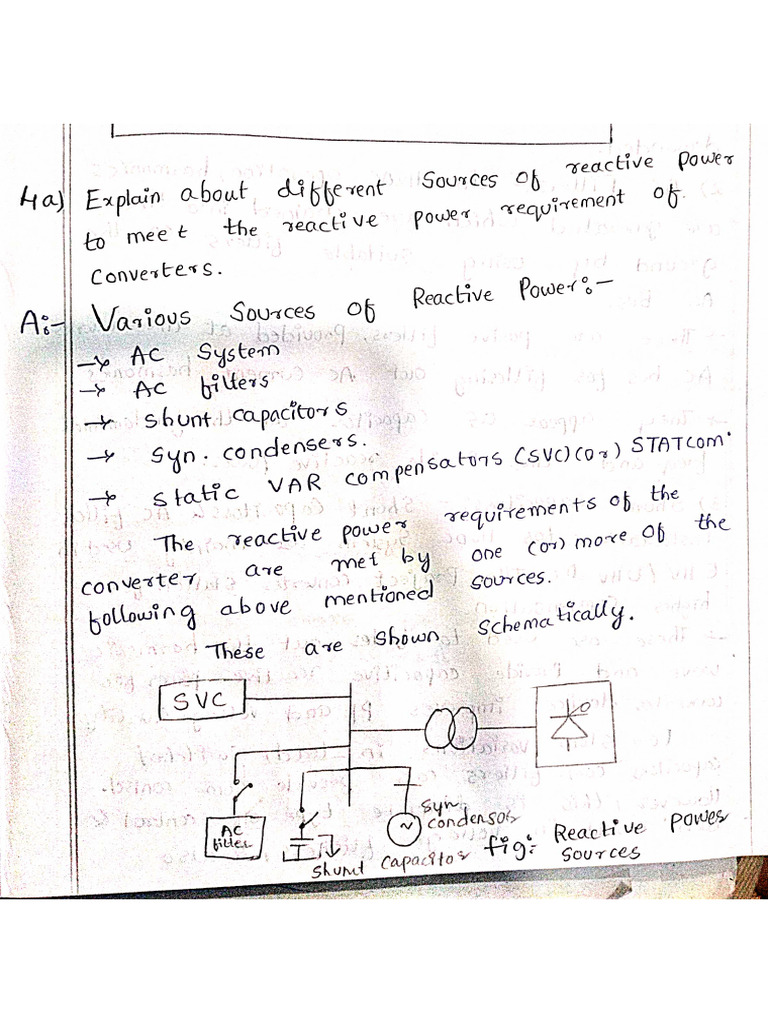 4a) Explain about different sources of reactive power
to meet the reactive power requirement of
converters.
A:- Various sources of Reactive Power:-
→ AC System
→ AC filters
→ shunt capacitors
→ syn. condensers.
→ static VAR compensators (SVC) (or) STATCOM.
The reactive power requirements of the
converter are met by one (or) more of the
following above mentioned sources.
These are shown schematically.
SVC
AC
filter
shunt capacitor
~
syn
condensor
fig:- Reactive power
sources